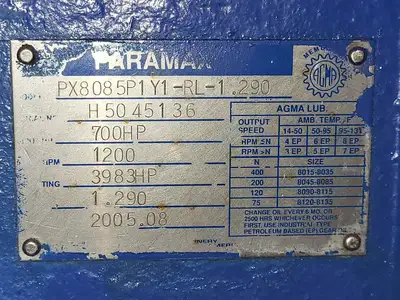 PARAMAX
MEMBER
AGMA
PX8085P1Y1-RL-1.290
H5045136
700HP
RPM 1200
TING 3983HP
1.290
2005.08
AGMA LUB.
OUTPUT SPEED AMB. TEMP. °F
14-50 50-95 95-131
RPM ≤N 4 EP 6 EP 8 EP
RPM >N 3 EP 5 EP 7 EP
N SIZE
400 8015-8035
200 8045-8085
120 8090-8115
75 8120-8135
CHANGE OIL EVERY 6 MO. OR
2500 HRS WHICHEVER OCCURS
FIRST. USE INDUSTRIAL TYPE
PETROLEUM BASED (EP) GEAR OIL